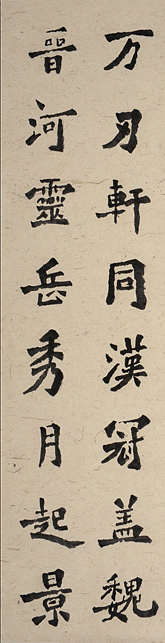 万刃軒同漢冠盖魏
晉河靈岳秀月起景